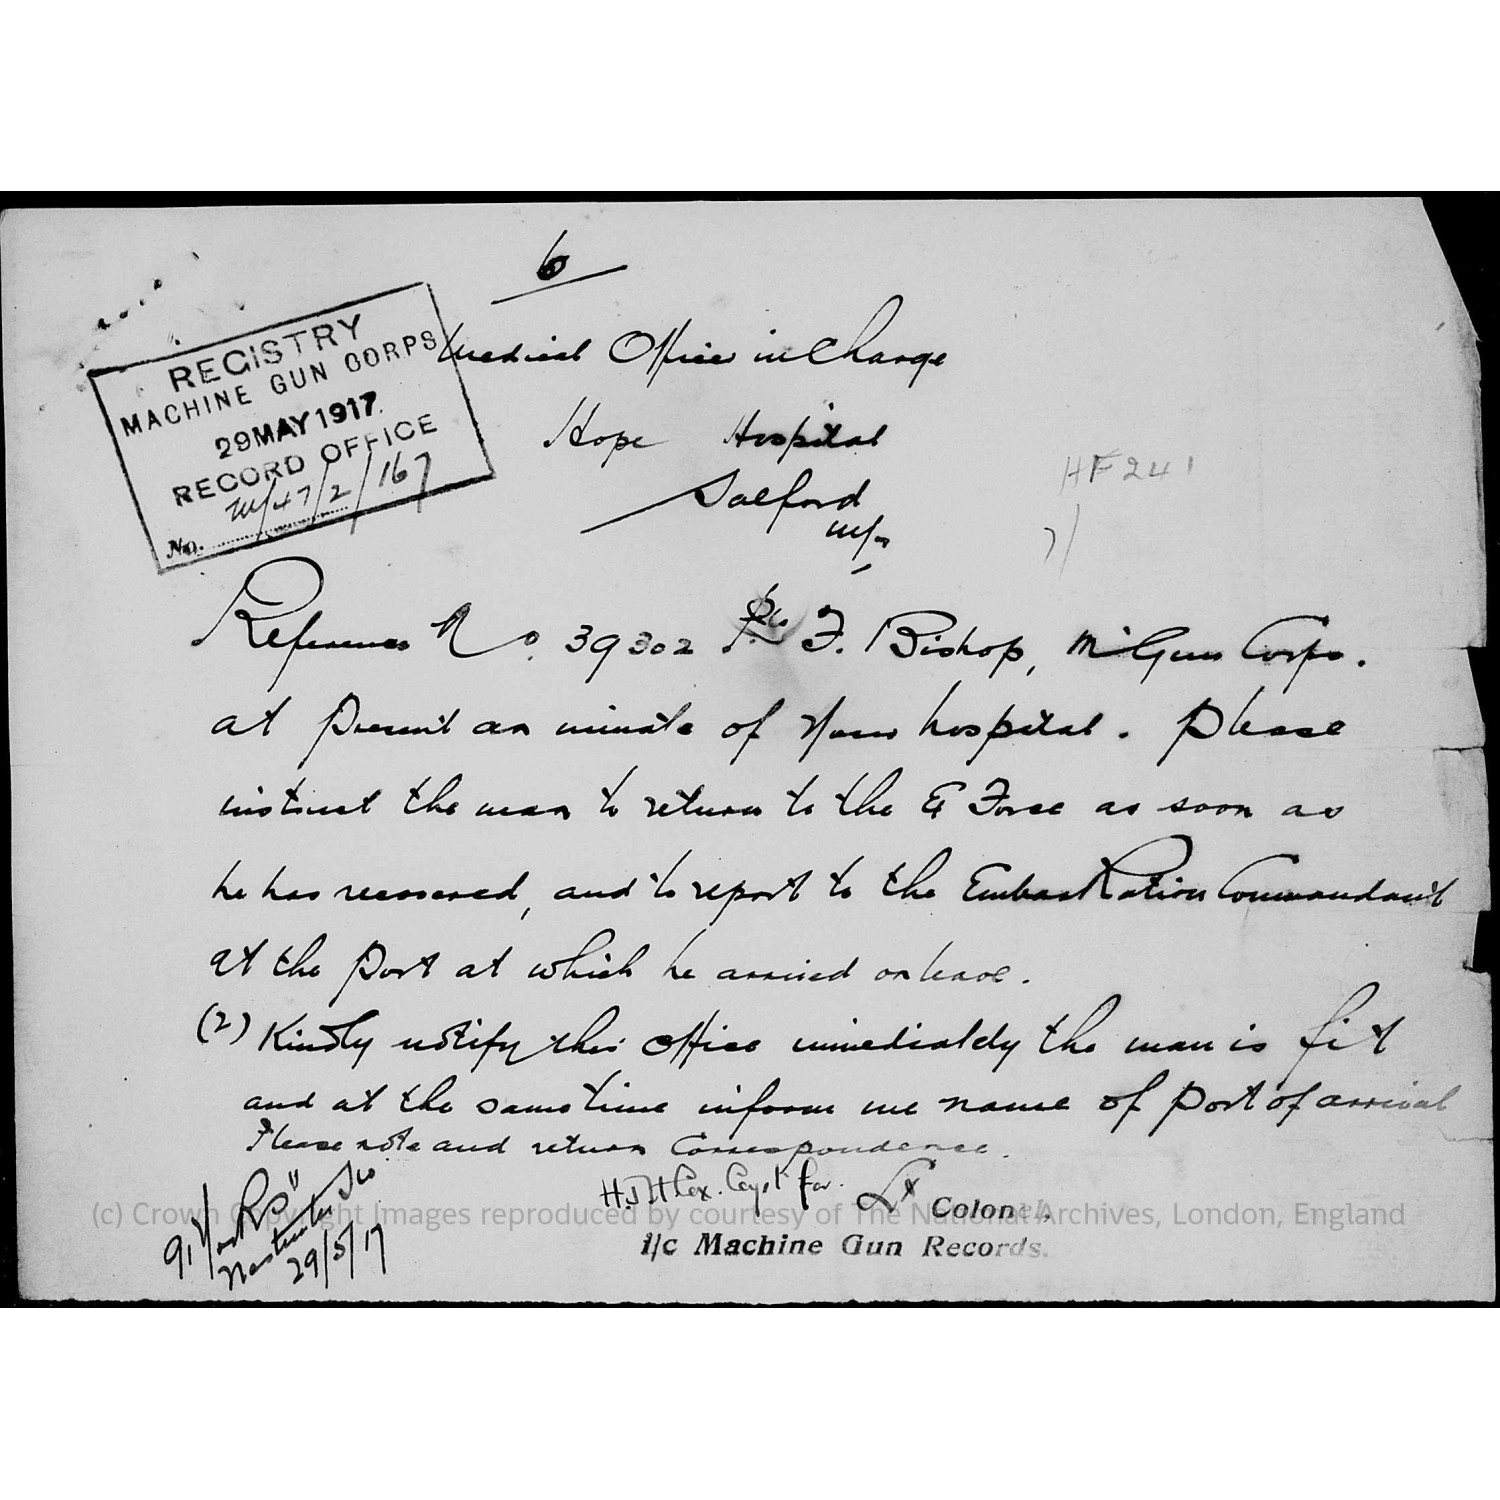 6
REGISTRY
MACHINE GUN CORPS
29 MAY 1917
RECORD OFFICE
No. M/47/2/167
Medical Officer in Charge
Hope Hospital
Salford
HF 241
Reference No. 39302 Pte F. Bishop, M' Gun Corps.
at present an inmate of your hospital. Please
instruct the man to return to the E Force as soon as
he has recovered, and to report to the Embarkation Commandant
at the Port at which he arrived on leave.
(2) Kindly notify this office immediately the man is fit
and at the same time inform me name of port of arrival
Please note and return correspondence.
Capt for Lt Colonel.
I/c Machine Gun Records.
91, York Rd
29/5/17
(c) Crown Copyright Images reproduced by courtesy of The National Archives, London, England